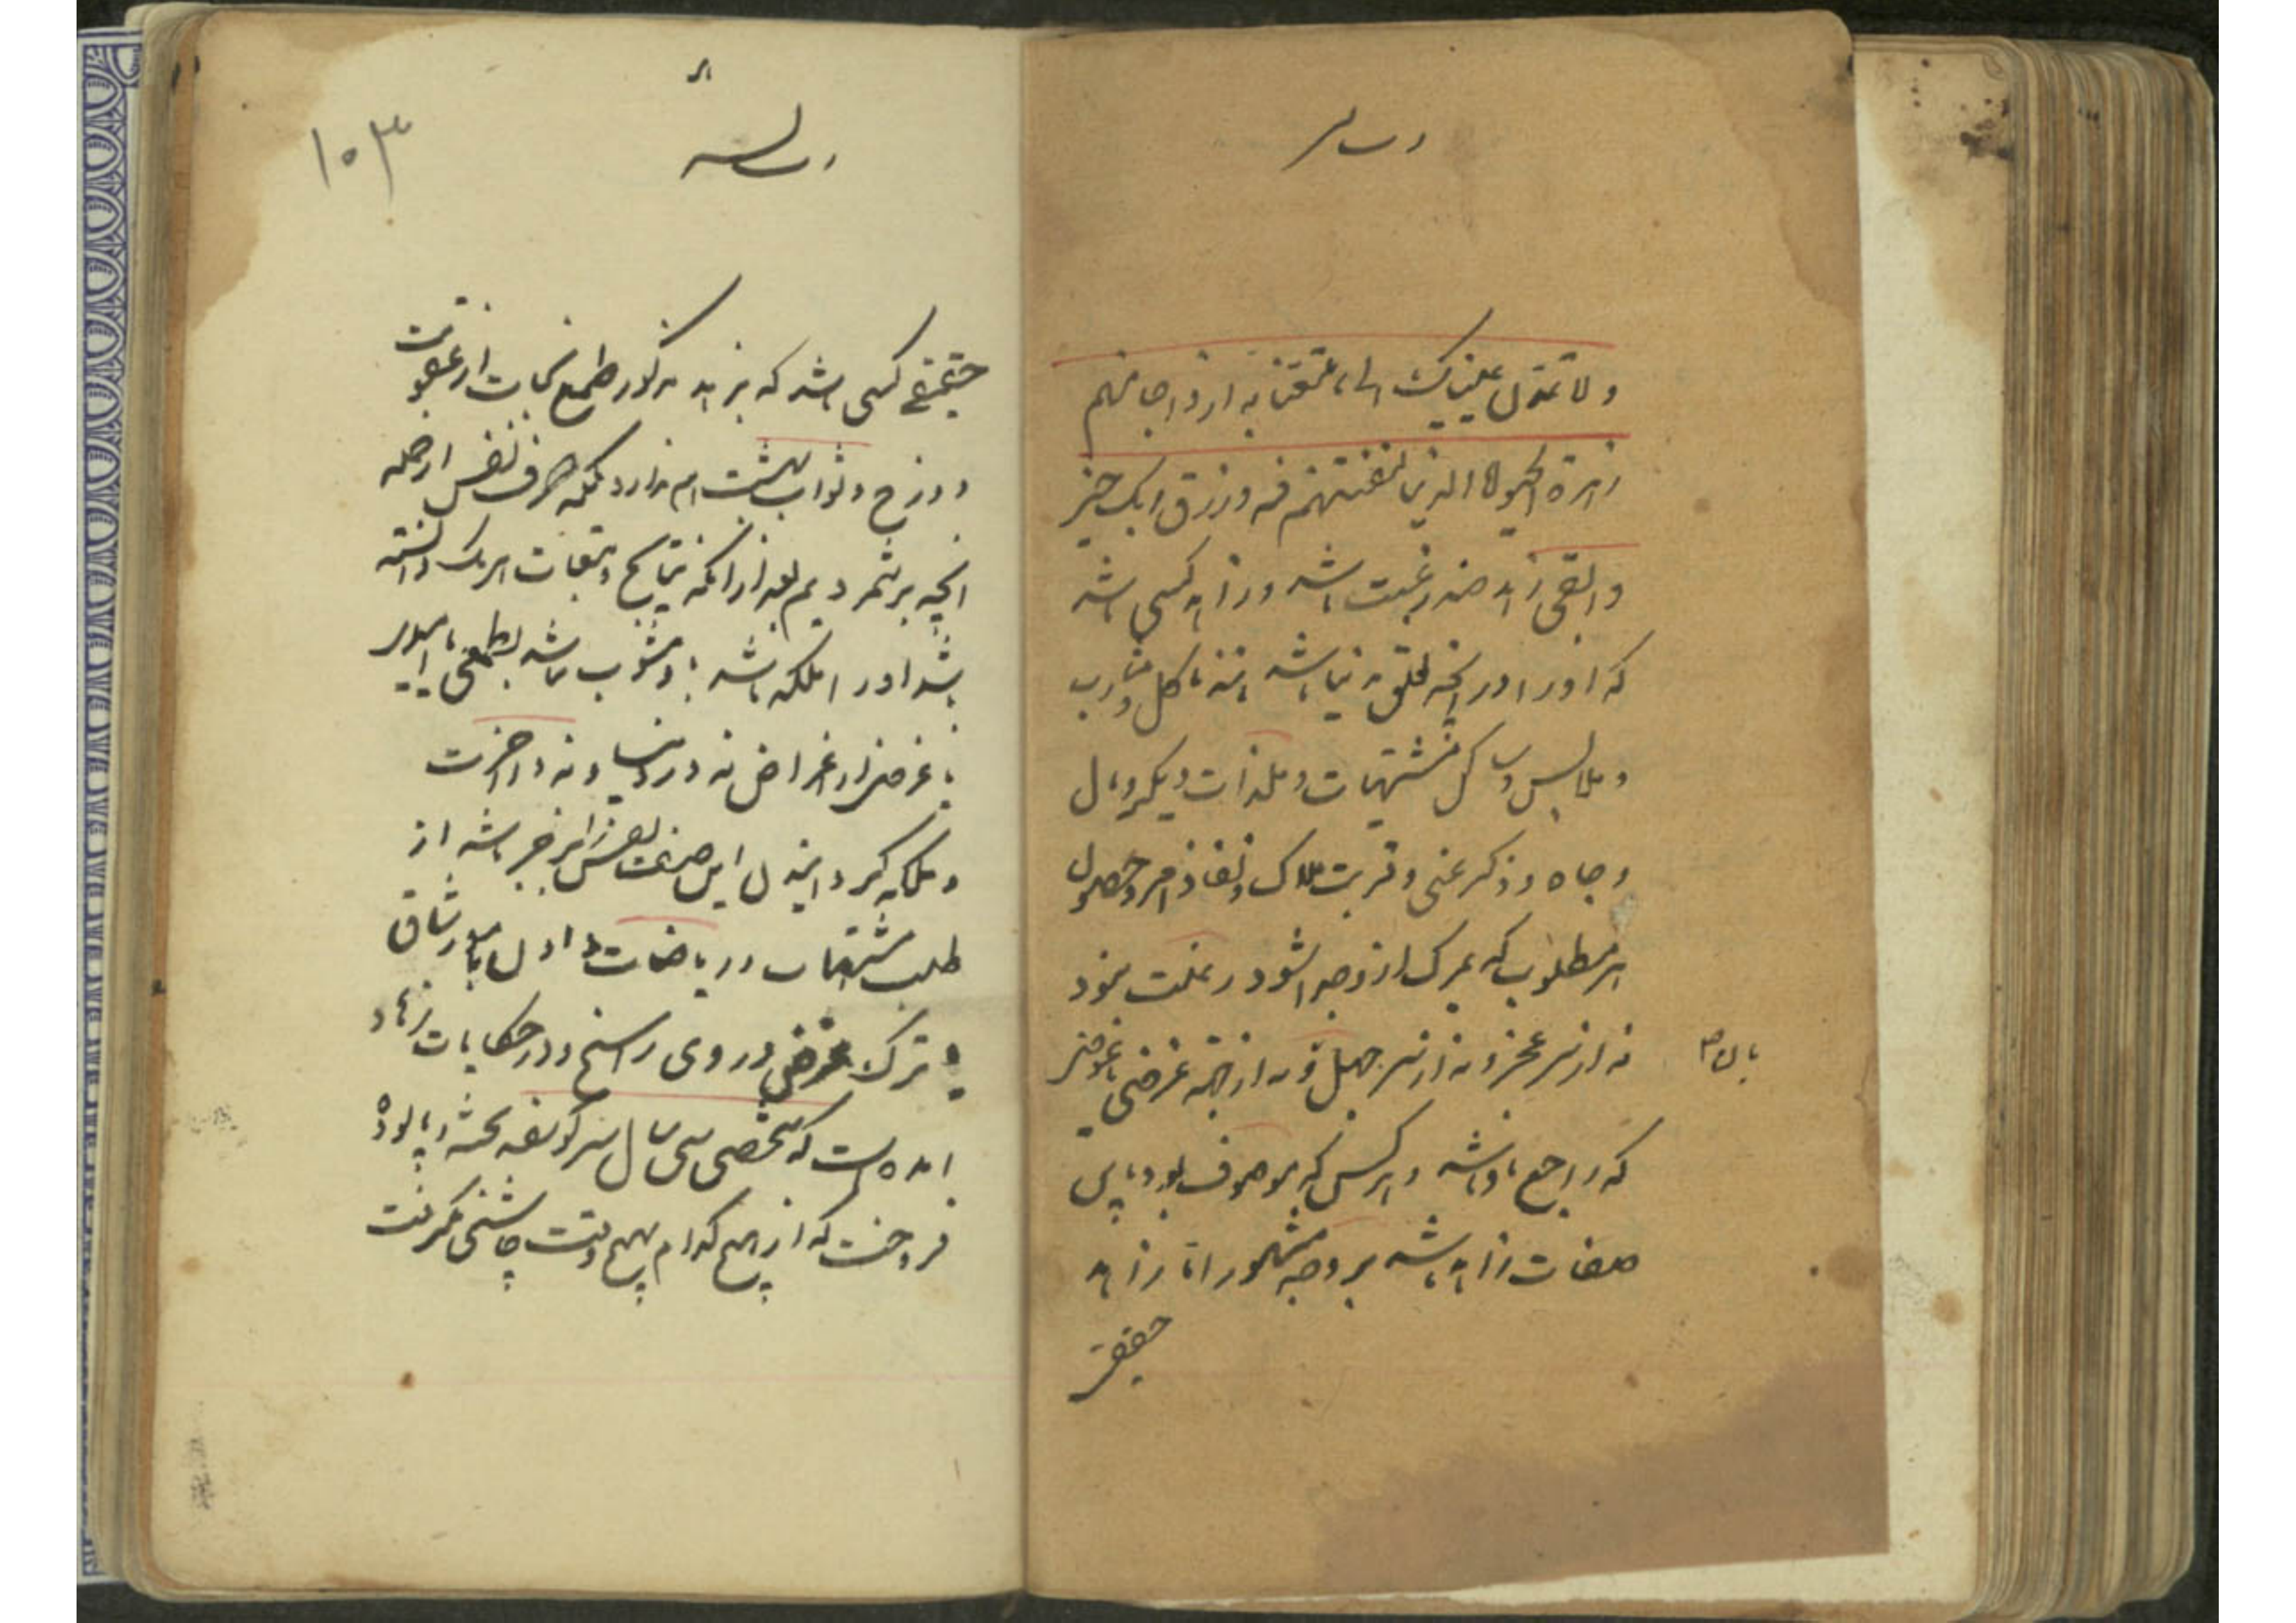 رساله
ولا تمدن عینیک الی ما متعنا به ازواجا منهم
زهرة الحیوة الدنیا لنفتنهم فیه ورزق ربک خیر
وابقی زهد ضد رغبت باشد وزاهد کسی باشد
که او را در انچه تعلق بدنیا باشد مانند مآکل و مشارب
و ملابس و مساکن و مشتهیات و ملذات دیگر و مال
و جاه و ذکر غنی و قربت ملوک و نفاذ امر و حصول
هر مطلوب که بمرک از وی جدا شود رغبت نبود
نه از سر عجز و نه از سر جهل و نه از جهة غرضی یا عوضی
که راجع باو باشد و هر کس که موصوف بود باین
صفات زاهد باشد بر وجه مشهور اما زاهد
حقیقی
رساله
۱۰۳
حقیقی کسی باشد که بزهد مذکور طمع نجات از عقوبت
دوزخ و ثواب بهشت هم ندارد بلکه صرف نفس از جمله
انچه برشمردیم بعد از انکه نتایج و تبعات هر یک دانسته
باشد او را ملکه باشد و مشوب نباشد بطمعی یا امیدی
یا غرضی از اغراض نه در دنیا و نه در اخرت
و ملکه کردانیدن این صفت نفس را بزجر باشد از
طلب مشتهیات و ریاضت دادن بامور شاق
تا ترک غرض در وی راسخ و در حکایات زهاد
امده است که شخصی سی سال سر کوسفند پخته و پالوده
فروخت که از هیچ کدام هیچ وقت چاشنی نکرفت